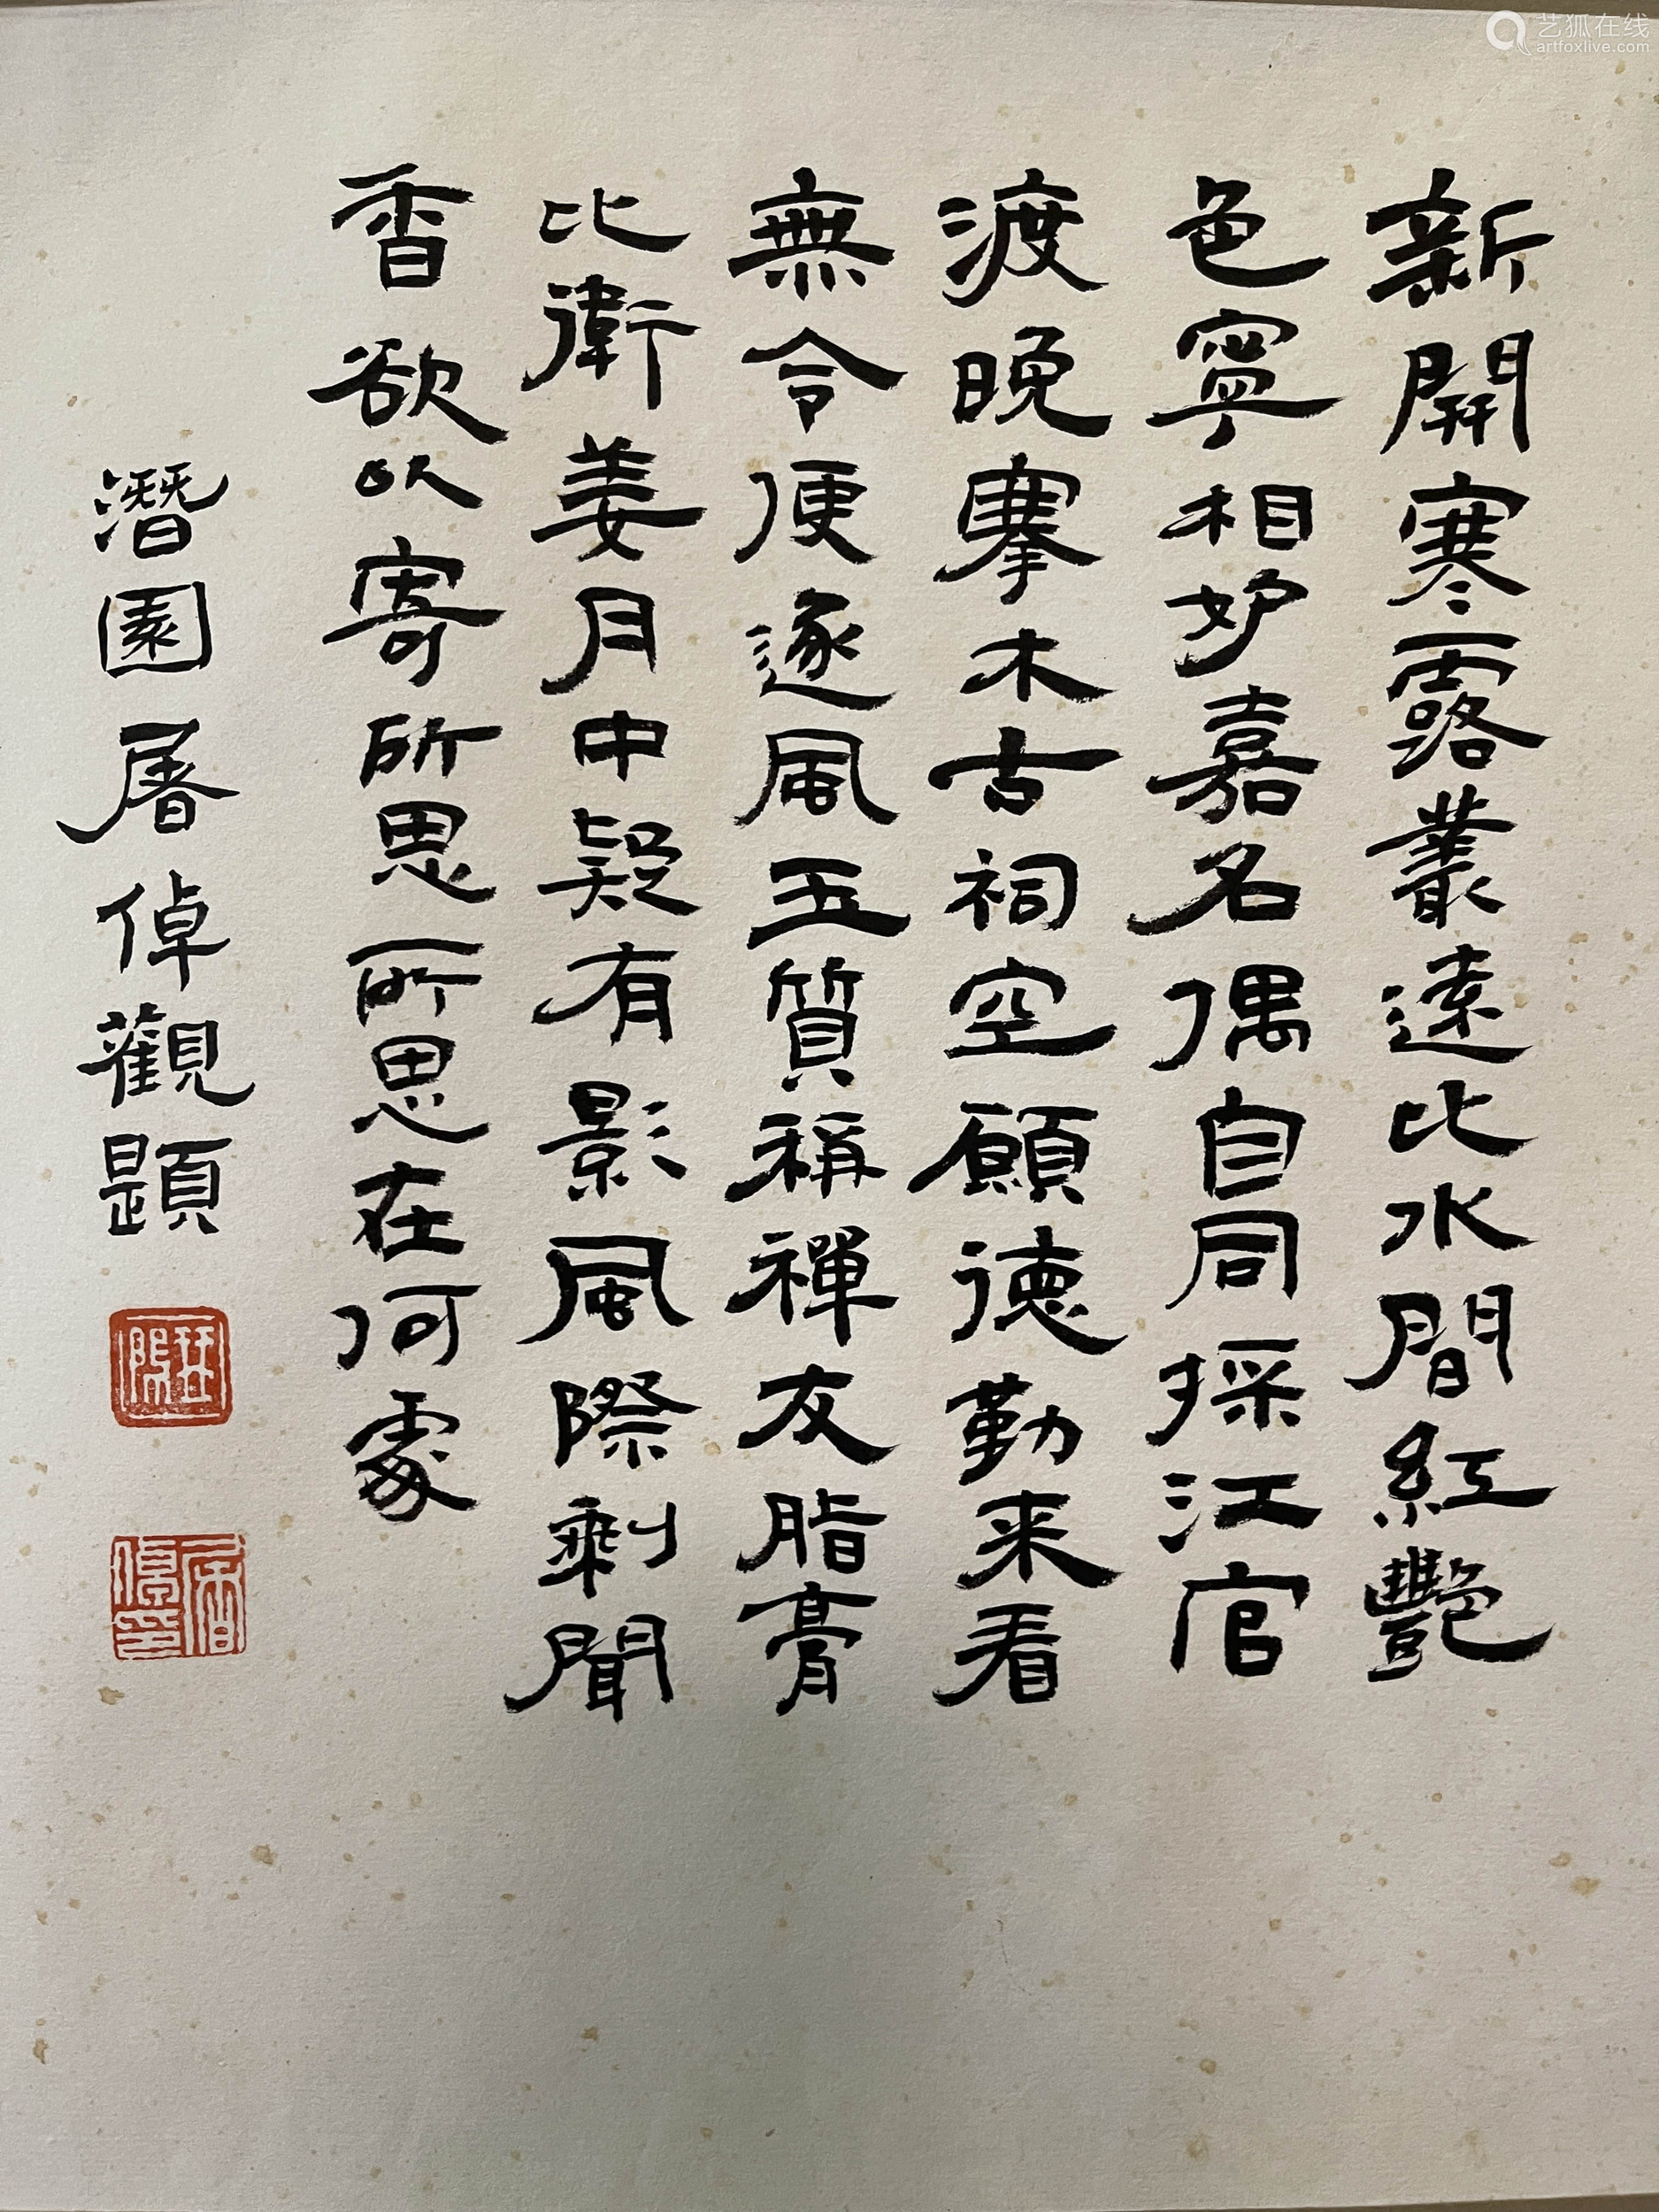 新開寒露叢遠比水間紅艷
色寧相妒嘉名偶自同採江官
渡晚搴木古祠空願徳勤来看
無令便逐風玉質稱禪友脂膏
比衛姜月中疑有影風際剩聞
香欲以寄所思所思在何處
潛園屠倬觀題
艺狐在线
artfoxlive.com